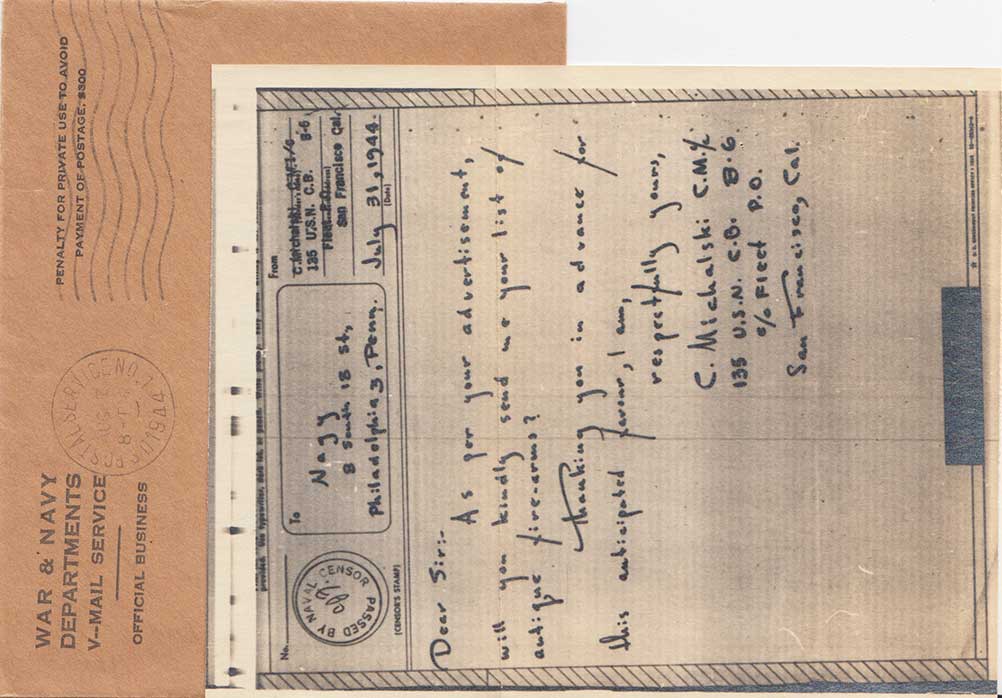 WAR & NAVY
DEPARTMENTS
V-MAIL SERVICE
OFFICIAL BUSINESS
PENALTY FOR PRIVATE USE TO AVOID
PAYMENT OF POSTAGE, $300
POSTAL SERVICE NO.
1944
No.
PASSED BY NAVAL CENSOR
(CENSOR'S STAMP)
To
Nagy
8 South 18 St,
Philadelphia 3, Penn.
From
C. Michalski C.M.1/c
135 U.S.N. C.B. B-6
Fleet P.O.
San Francisco Cal.
July 31, 1944
(Date)
Dear Sir:-
As per your advertisement,
will you kindly send me your list of
antique fire-arms?
Thanking you in advance for
this anticipated favour, I am,
respectfully yours,
C. Michalski C.M.1/c
135 U.S.N. C.B. B-6
c/o Fleet P.O.
San Francisco, Cal.